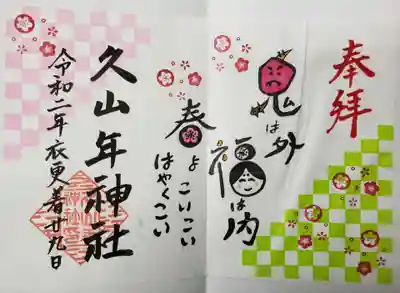 奉拝
鬼は外
福は内
春よ
こいこい
はやくこい
久山年神社
令和二年衣更着廿九日